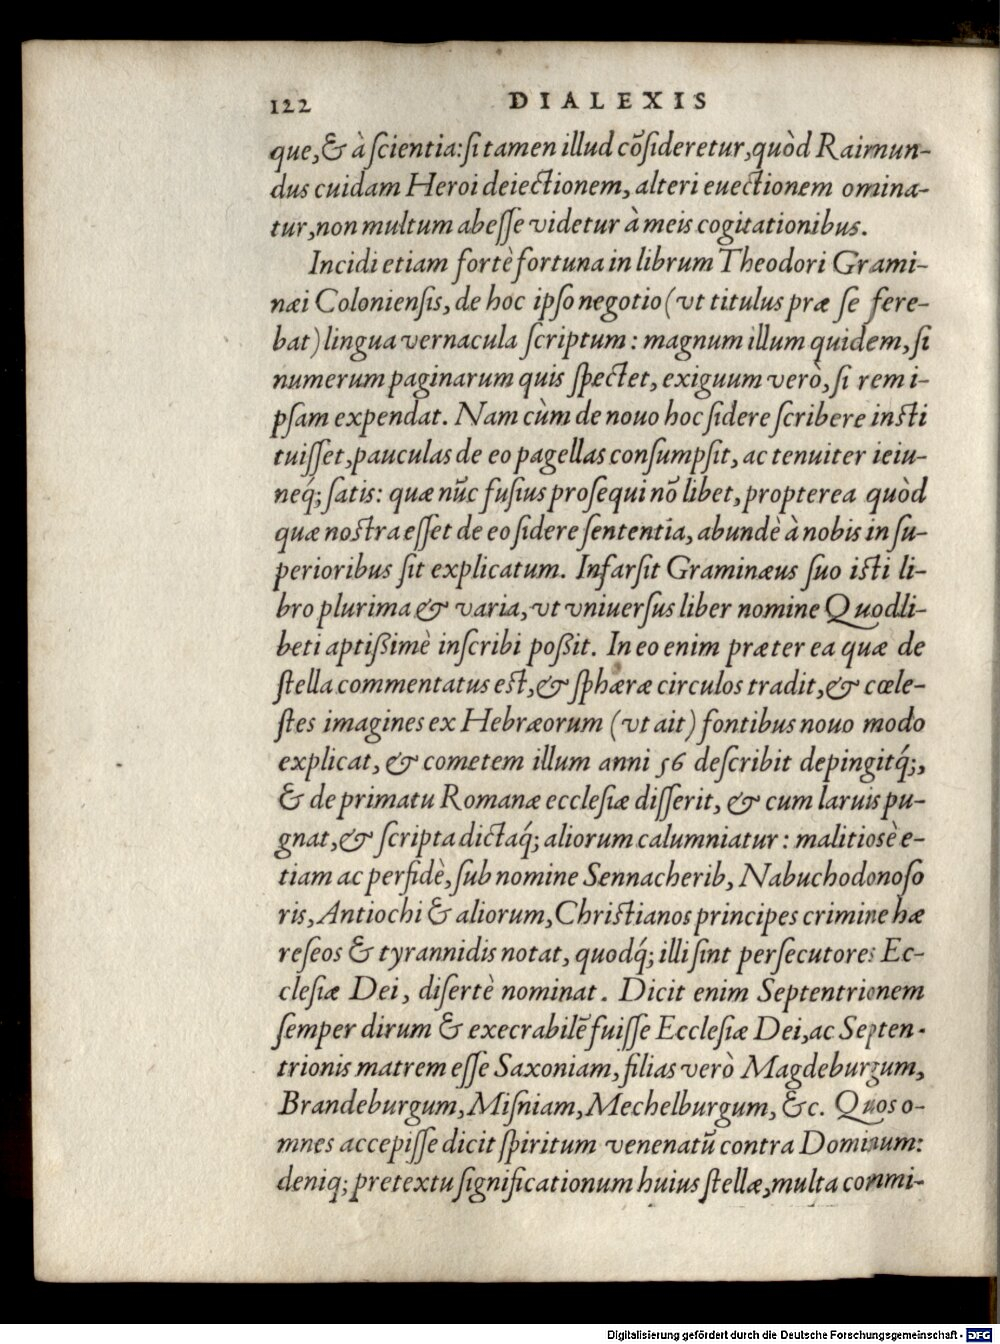 122 DIALEXIS
que, & à ſcientia: ſi tamen illud cõſideretur, quòd Raimun-
dus cuidam Heroi deiectionem, alteri euectionem omina-
tur, non multum abeſſe videtur à meis cogitationibus.
Incidi etiam fortè fortuna in librum Theodori Grami-
næi Colonienſis, de hoc ipſo negotio (vt titulus præ ſe fere-
bat) lingua vernacula ſcriptum: magnum illum quidem, ſi
numerum paginarum quis ſpectet, exiguum verò, ſi rem i-
pſam expendat. Nam cùm de nouo hoc ſidere ſcribere inſti
tuiſſet, pauculas de eo pagellas conſumpſit, ac tenuiter ieiu-
neq́; ſatis: quæ nũc fuſius proſequi nõ libet, propterea quòd
quæ noſtra eſſet de eo ſidere ſententia, abundè à nobis in ſu-
perioribus ſit explicatum. Infarſit Graminæus ſuo iſti li-
bro plurima & varia, vt vniuerſus liber nomine Quodli-
beti aptißimè inſcribi poßit. In eo enim præter ea quæ de
ſtella commentatus eſt, & ſphæræ circulos tradit, & cœle-
ſtes imagines ex Hebræorum (vt ait) fontibus nouo modo
explicat, & cometem illum anni 56 deſcribit depingitq́;,
& de primatu Romanæ eccleſiæ diſſerit, & cum laruis pu-
gnat, & ſcripta dictaq́; aliorum calumniatur: malitiosè e-
tiam ac perfidè, ſub nomine Sennacherib, Nabuchodonoſo
ris, Antiochi & aliorum, Chriſtianos principes crimine hæ
reſeos & tyrannidis notat, quodq́; illi ſint perſecutores Ec-
cleſiæ Dei, diſertè nominat. Dicit enim Septentrionem
ſemper dirum & execrabilẽ fuiſſe Eccleſiæ Dei, ac Septen-
trionis matrem eſſe Saxoniam, filias verò Magdeburgum,
Brandeburgum, Miſniam, Mechelburgum, &c. Quos o-
mnes accepiſſe dicit ſpiritum venenatũ contra Dominum:
deniq; pretextu ſignificationum huius ſtellæ, multa commi-
Digitalisierung gefördert durch die Deutsche Forschungsgemeinschaft - DFG